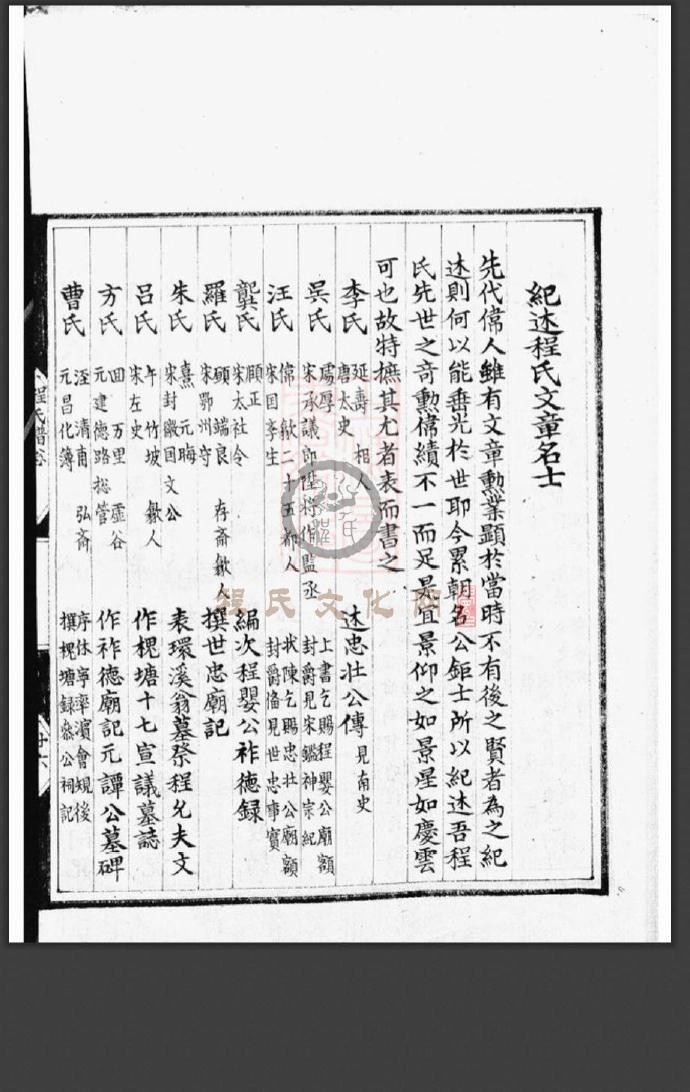 紀述程氏文章名士
先代偉人雖有文章勳業顯於當時不有後之賢者為之紀
述則何以能垂光於世耶今累朝名公鉅士所以紀述吾程
氏先世之奇勳偉績不一而足是宜景仰之如景星如慶雲
可也故特摭其尤者表而書之
李氏 延壽 相人 唐太史 述忠壯公傳 見南史
吳氏 處厚 宋承議郎陞將作監丞 上書乞賜程嬰公廟額 封爵見宋鑑神宗紀
汪氏 偉 歙二十五都人 宋国孝生 狀陳乞賜忠壯公廟額 封爵偹見世忠事實
龔氏 頤正 宋太社令 編次程嬰公祚德録
羅氏 頤 端良 存齋歙人 宋鄂州守 撰世忠廟記
朱氏 熹 元晦 宋封徽国文公 表環溪翁墓祭程允夫文
呂氏 午 竹坡 歙人 宋左史 作槐塘十七宣議墓誌
方氏 回 万里 虛谷 元建德路総管 作祚德廟記元譚公墓碑
曹氏 涇 清甫 弘斋 元昌化簿 序休寧率濱會規後 撰槐塘録叅公祠記
程氏譜
廿六
程氏文化网